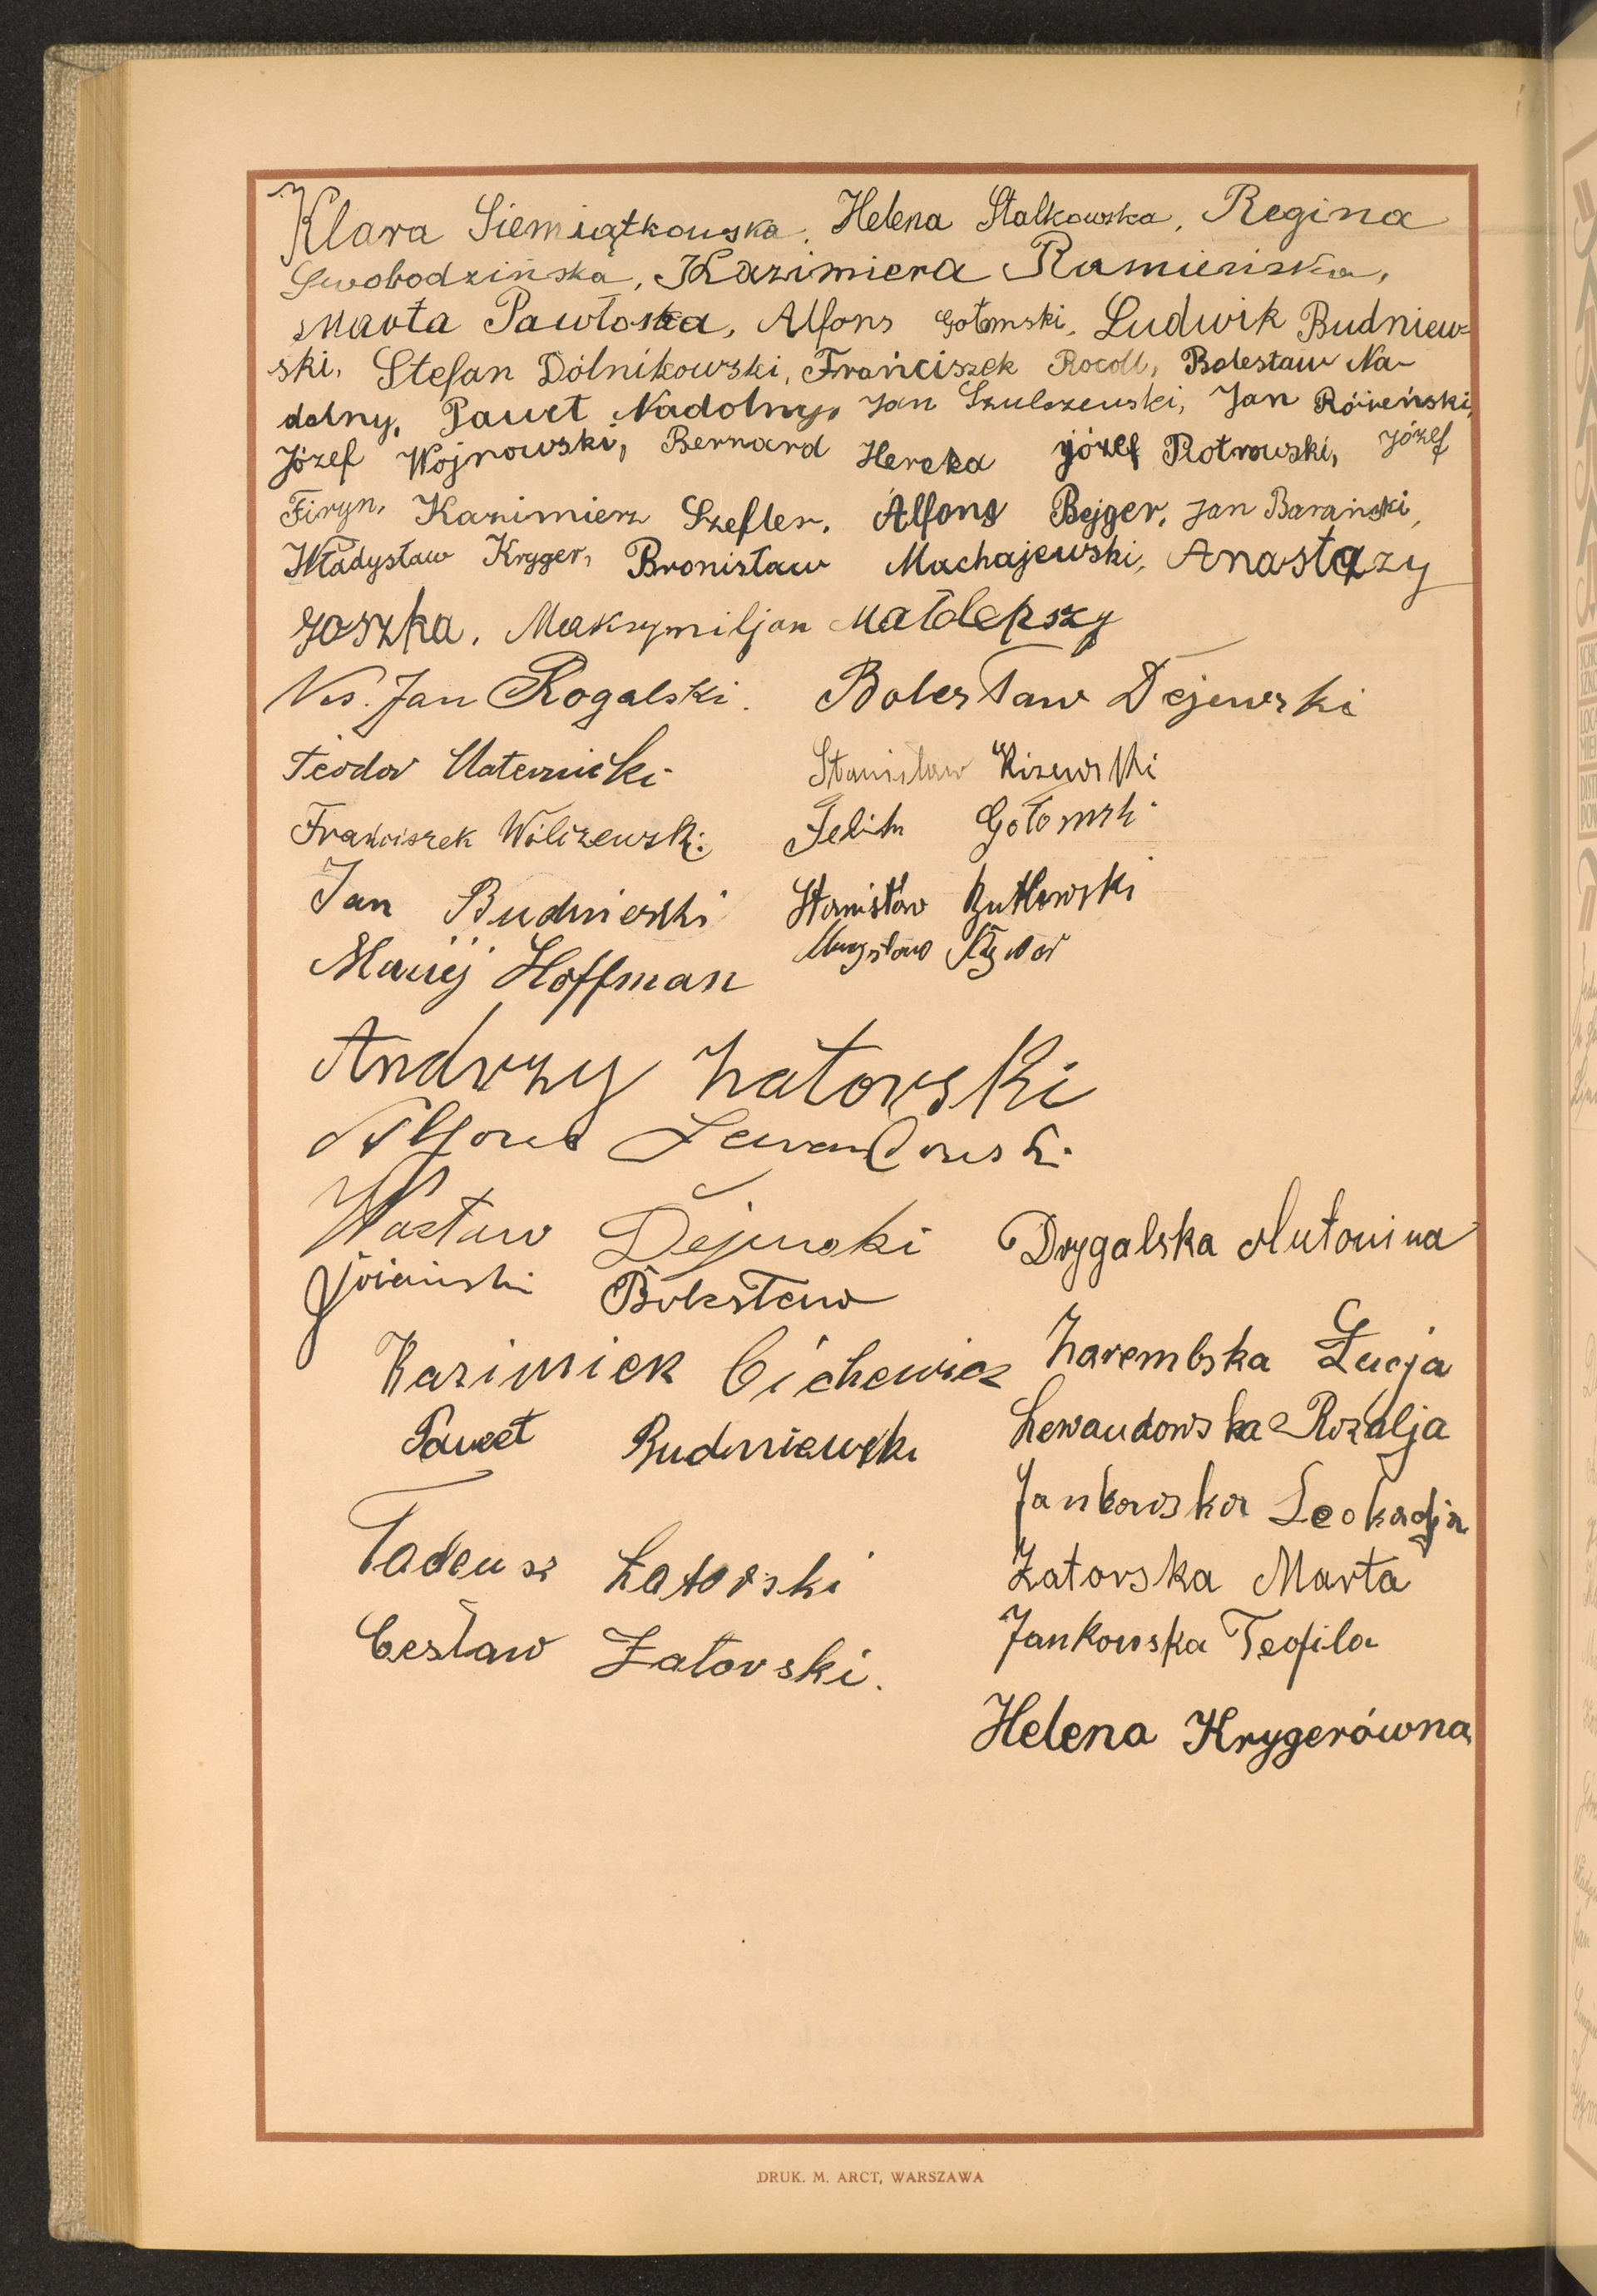 Klara Siemiątkowska, Helena Stalkowska, Regina
Swobodzińska, Kazimiera Ramieńska,
Marta Pawłoska, Alfons Gołomski, Ludwik Budniew-
ski, Stefan Dólnikowski, Franciszek Rocoll, Bolesław Na-
dolny, Paweł Nadolny, Jan Szulczewski, Jan Różeński,
Józef Wojnowski, Bernard Hercka Józef Piotrowski, Józef
Firyn, Kazimierz Szefler, Alfons Bejger, Jan Barański,
Władysław Kryger, Bronisław Machajewski, Anastazy
Joszka, Maksymiljan Małolepszy
Ks. Jan Rogalski. Bolesław Dejewski
Teodor Maternicki Stanisław Kizewski
Franciszek Wiliżewski Feliks Gołomski
Jan Budnieski Stanisław Rutkowski
Maciej Hoffman
Andrzy Zatorski
Alfons Lewandowski
Wacław Dejewski Drygalska Antonina
Bolesław
Kazimiek Cichewicz Zarembska Łucja
Paweł Budniewski Lewandowska Rozalja
Jankowska Leokadja
Tadeusz Zatorski Zatorska Marta
Cesław Zatorski. Jankowska Teofila
Helena Krygerówna
DRUK. M. ARCT, WARSZAWA